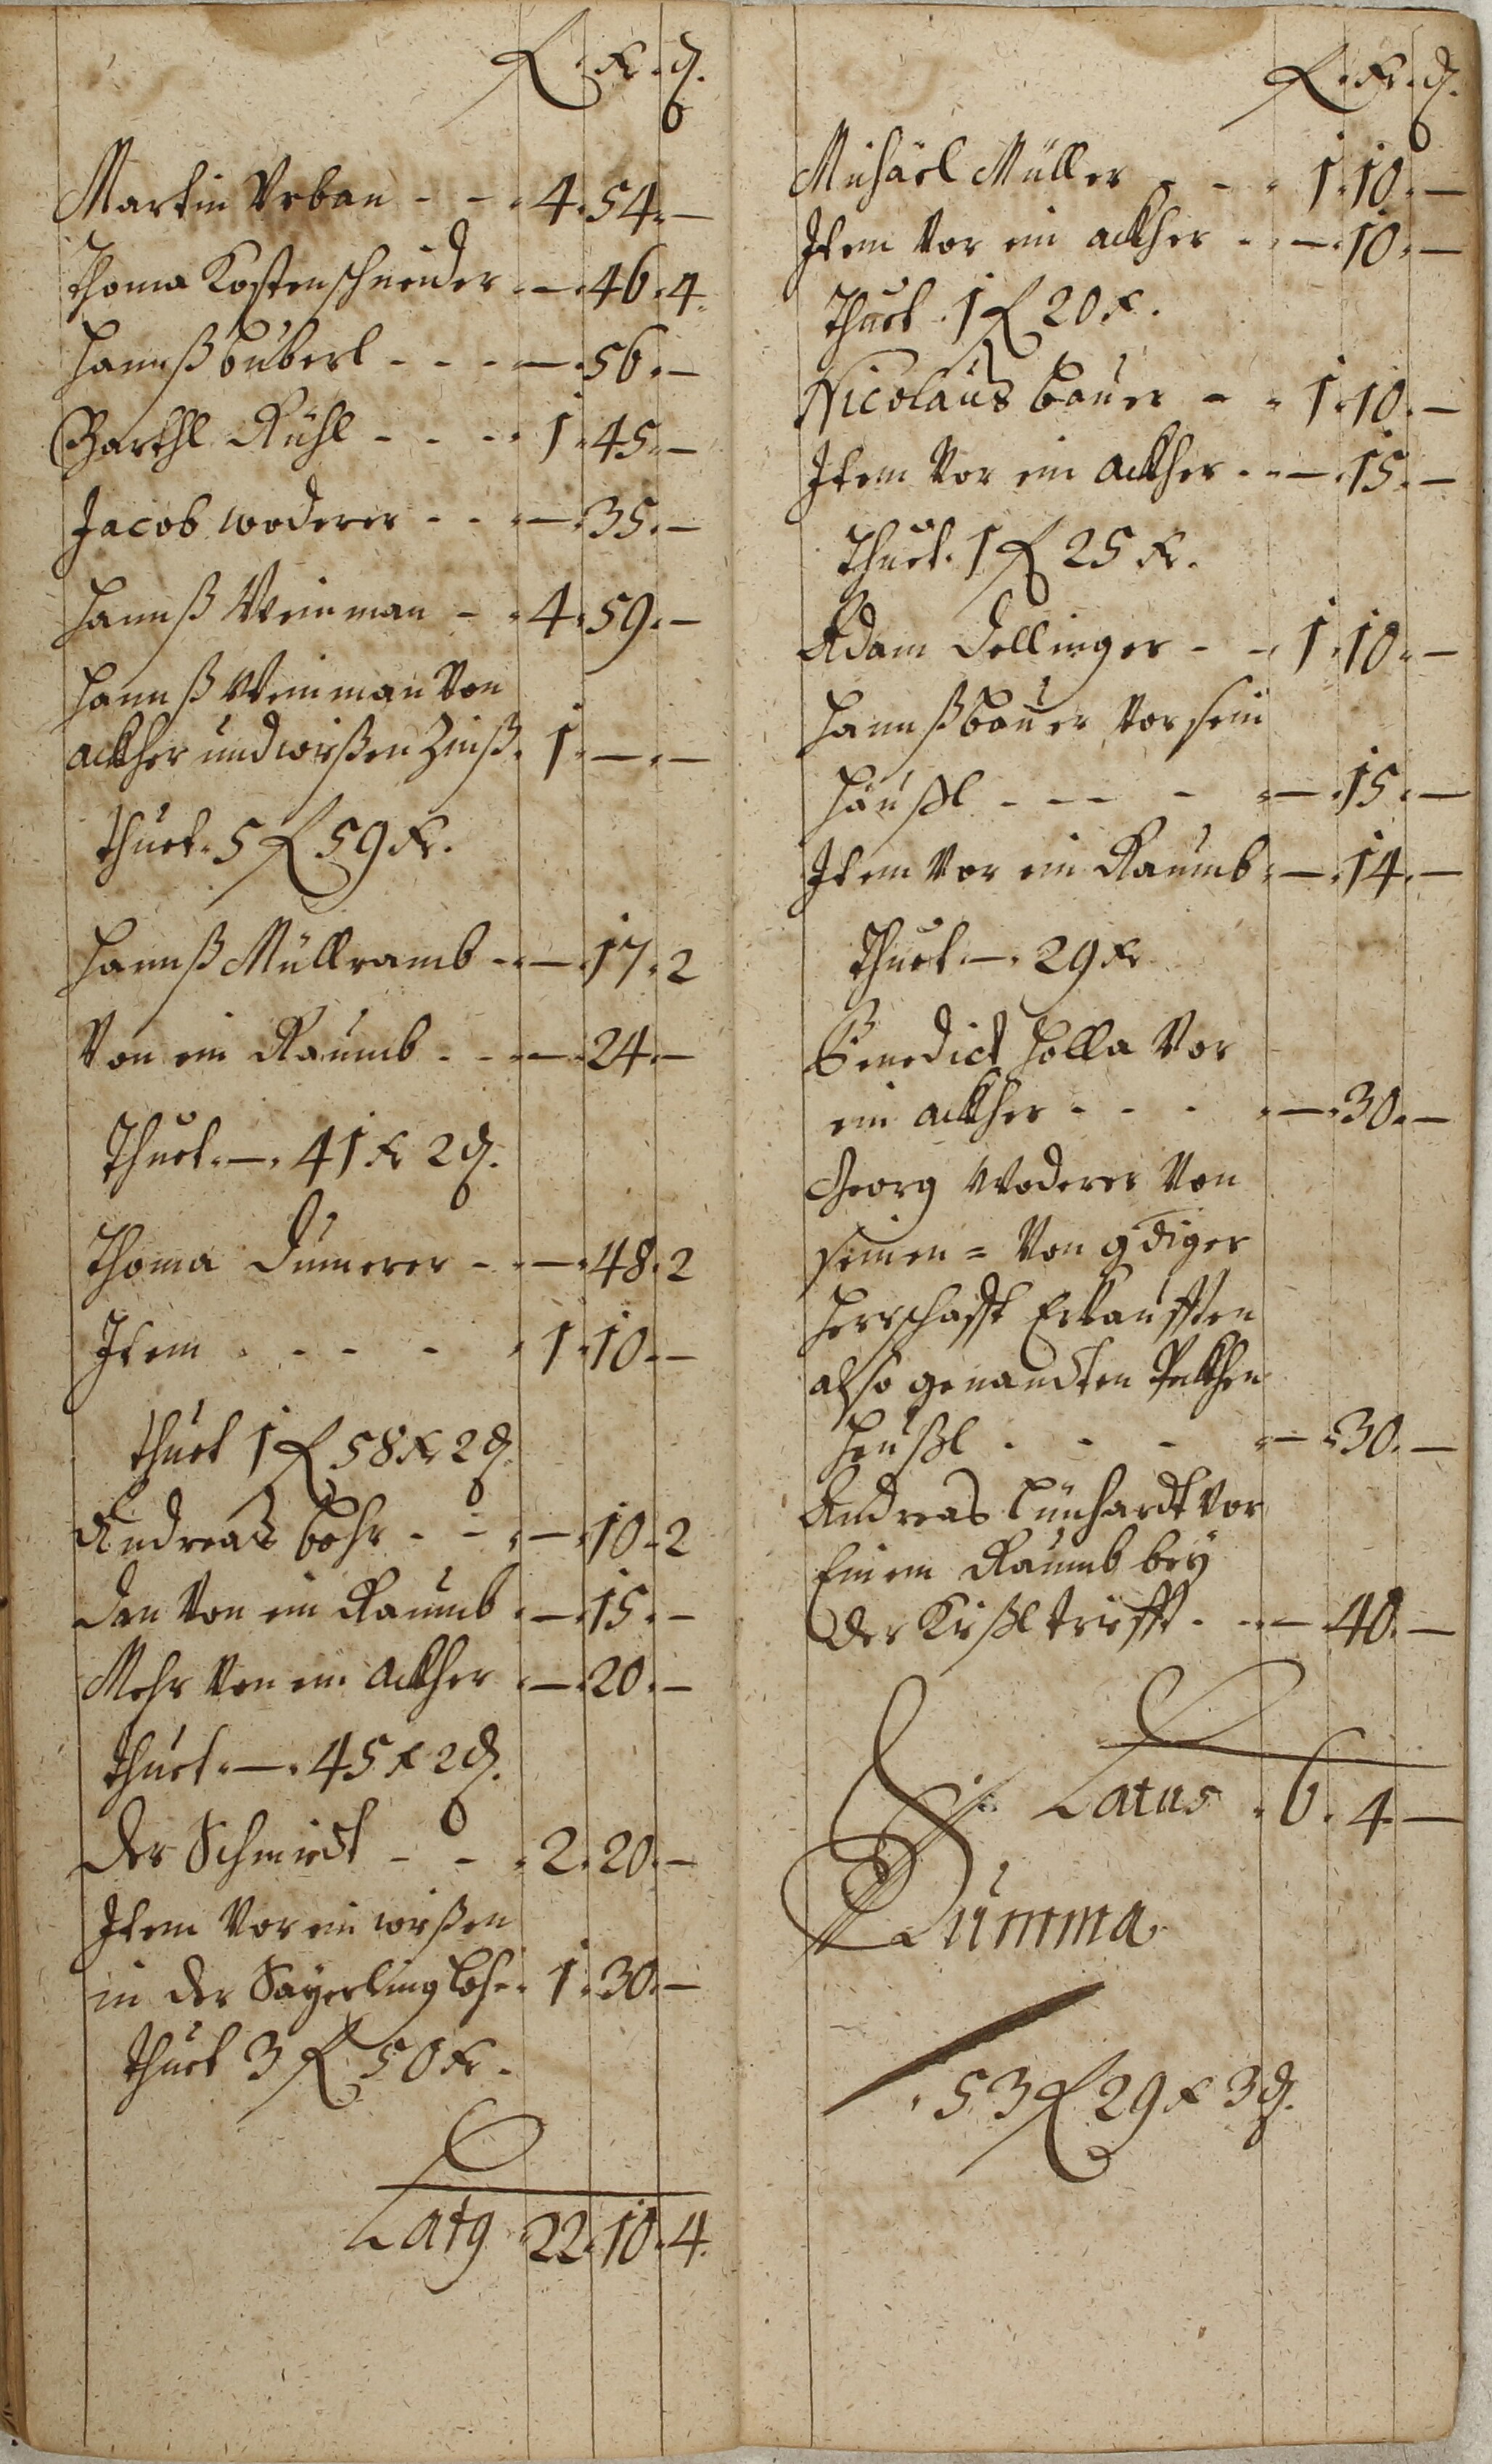 f. Kr. d.
Martin Urban - - . 4. 54. —
Thoma Kostenschneider . — . 46 . 4.
Hannß Buberl - - - — . 56 . —
Barthl Rühl - - - . 1 . 45 . —
Jacob woderer - - . — . 35 . —
Hannß Weinman - . 4 . 59 . —
Hannß Weinman Von
ackher und wißen Zinß . 1 . — . —
thuet . 5 f 59 Kr .
Hannß Müllramb - . — . 17 . 2
Von ein Raumb . - . — . 24 . —
Thuet . — . 41 Kr 2 d.
Thoma Dumerer - . — . 48 . 2
Item . - - - . 1 . 10 . —
thuet 1 f 58 Kr 2 d.
Andreas Böhr . - . — . 10 . 2
Den Von ein Raumb . — . 15 . —
Mehr Von ein ackher . — . 20 . —
thuet . — . 45 Kr 2 d.
Der Schmidt - - . 2 . 20 . —
Item Vor ein wißen
in der Sayerling lohe . 1 . 30 . —
thuet 3 f 50 Kr .
Latg . 22 . 10 . 4 .
f. Kr. d.
Michäel Müller - - . 1 . 10 . —
Item Vor ein ackher . . — . 10 . —
Thuet . 1 f 20 Kr .
Nicolaus Bauer - . 1 . 10 . —
Item Vor ein ackher . . — . 15 . —
Thuet . 1 f 25 Kr .
Adam Dellinger - - . 1 . 10 . —
Hannß Bauer Vor sein
Häußl . - - - - . — . 15 . —
Item Vor ein Raumb . — . 14 . —
Thuet . — . 29 Kr
Benedict Holla Vor
ein ackher . - . . — . 30 . —
Georg Woderer Von
seinen = Von gdiger
Herrschafft Erkaufften
also genandten
Heußl . - - . — . 30 . —
Andreas Linhardt Vor
Einem Raumb bey
Der Kißltrifft . . — . 40 . —
Latus . 6 . 4 —
Summa
. 53 f 29 Kr 3 d.